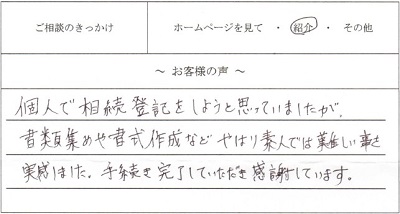 ご相談のきっかけ
ホームページを見て ・ 紹介 ・ その他
~ お客様の声 ~
個人で相続登記をしようと思っていましたが、
書類集めや書式作成など やはり素人では難しい事を
実感しました。手続き完了していただき感謝しています。